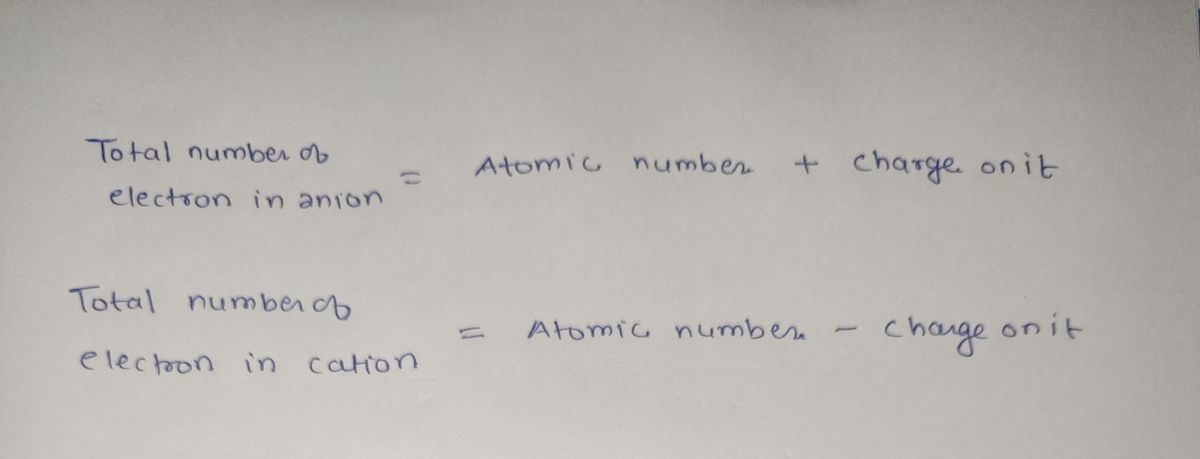 Total number of
electron in anion = Atomic number + charge on it
Total number of
electron in cation = Atomic number - charge on it